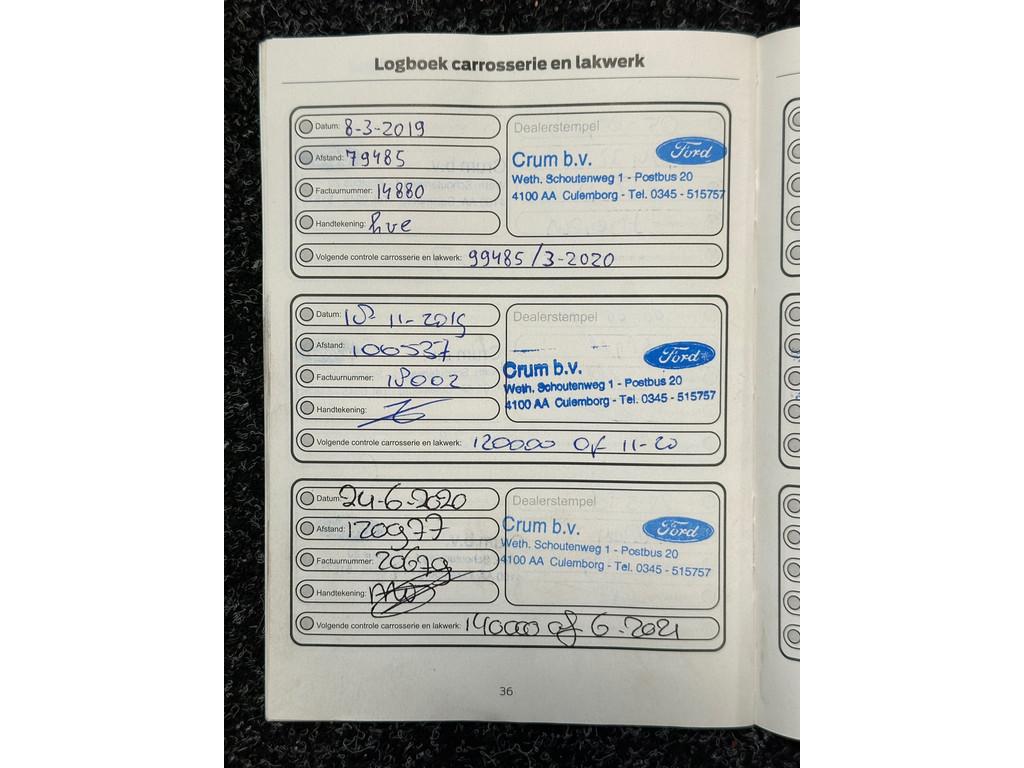 Logboek carrosserie en lakwerk
Datum: 8-3-2019
Afstand: 79485
Factuurnummer: 14880
Handtekening:
Volgende controle carrosserie en lakwerk: 99485/3-2020
Dealerstempel
Ford
Crum b.v.
Weth. Schoutenweg 1 - Postbus 20
4100 AA Culemborg - Tel. 0345 - 515757
Datum: 18-11-2019
Afstand: 100537
Factuurnummer: 18002
Handtekening:
Volgende controle carrosserie en lakwerk: 120000 of 11-20
Dealerstempel
Ford
Crum b.v.
Weth. Schoutenweg 1 - Postbus 20
4100 AA Culemborg - Tel. 0345 - 515757
Datum: 24-6-2020
Afstand: 120977
Factuurnummer: 20679
Handtekening:
Volgende controle carrosserie en lakwerk: 140000 of 6-2021
Dealerstempel
Ford
Crum b.v.
Weth. Schoutenweg 1 - Postbus 20
4100 AA Culemborg - Tel. 0345 - 515757
36